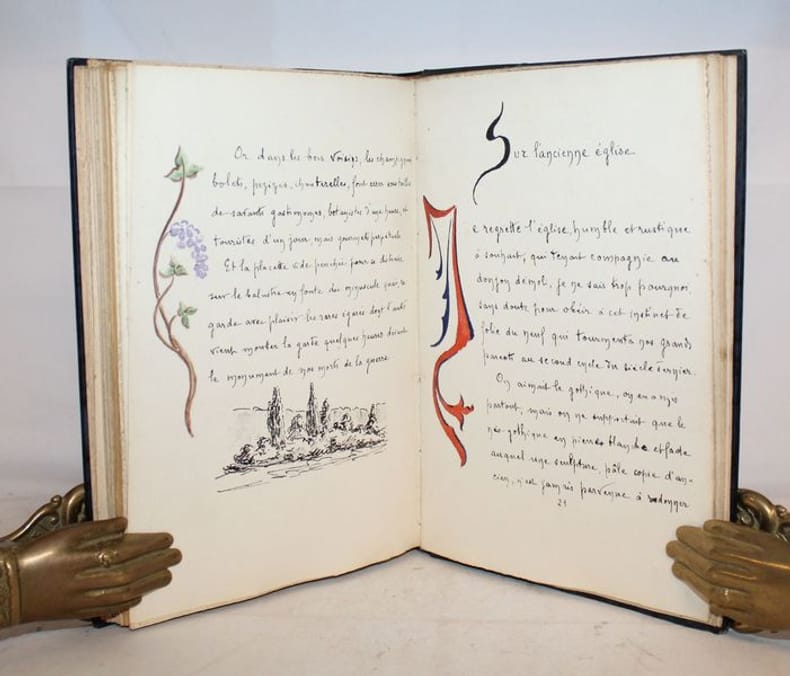 Or dans les bois voisins, les champignons
bolets, pezizes, chanterelles, font
de savants gastronomes, botanistes d'une heure, et
touristes d'un jour, mais gourmets perpétuels.
Et la placette vide penchée pour se distraire
sur le balustre en fonte du minuscule quai, re
garde avec plaisir les rares égarés dont l'auto
vient monter la garde quelques heures devant
le monument de nos morts de la guerre
Sur l'ancienne église
Je regrette l'église, humble et rustique
à souhait, qui tenait compagnie au
donjon démoli, je ne sais trop pourquoi,
sans doute pour obéir à cet instinct de
folie du neuf qui tourmenta nos grands
parents au second cycle du siècle dernier.
On aimait le gothique, on en a mis
partout, mais on ne supportait que le
néo-gothique en pierres blanche et fade
auquel une sculpture, pâle copie d'an-
cien, n'est jamais parvenue à redonner
21